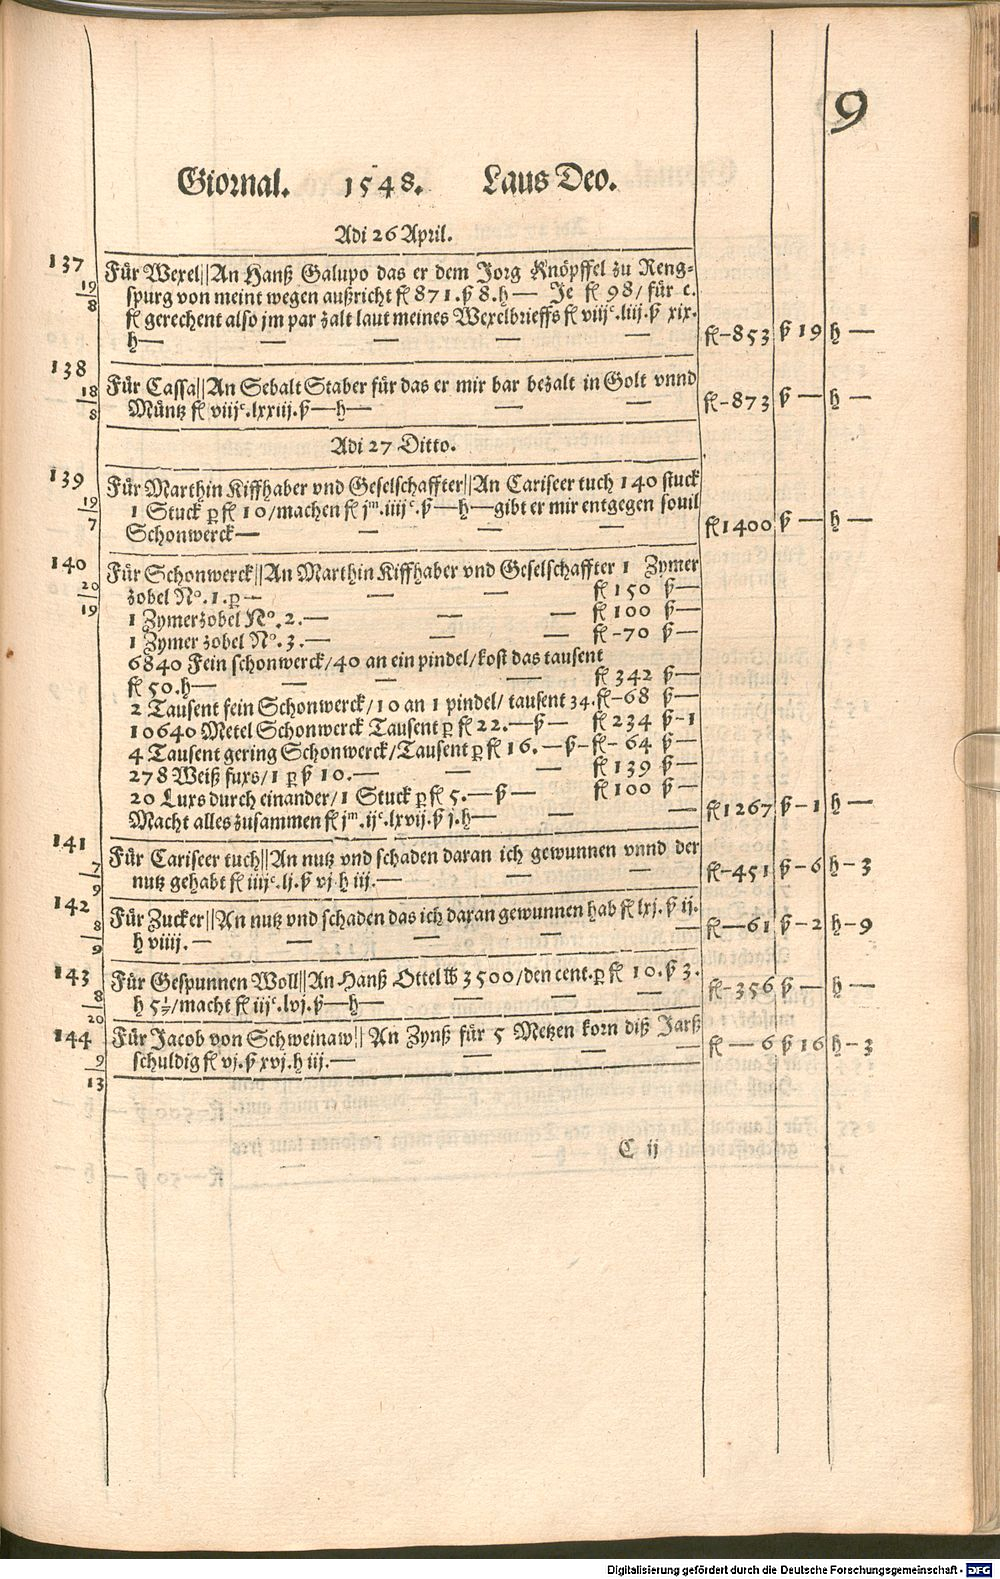 9
Giornal. 1548. Laus Deo.
Adi 26 April.
137 Für Wexel||An Hanß Galupo das er dem Jorg Knöpffel zu Reng-
19/8 spurg von meint wegen außricht fl 871.ß 8.h— Je fl 98/ für c.
fl gerechent also jm par zalt laut meines Wexelbrieffs fl viijᶜ.liij.ß xix.
h— — — — — fl-853 ß 19 h —
138 Für Cassa||An Sebalt Staber für das er mir bar bezalt in Golt vnnd
18/8 Müntz fl viijᶜ.lxxiij.ß—h— — — fl-873 ß — h —
Adi 27 Ditto.
139 Für Marthin Kiffhaber vnd Geselschaffter||An Cariseer tuch 140 stuck
19/7 1 Stuck ꝑ fl 10/machen fl jᵐ.iiijᶜ.ß—h—gibt er mir entgegen souil
Schonwerck— — — — fl1400 ß — h —
140 Für Schonwerck||An Marthin Kiffhaber vnd Geselschaffter 1 Zymer
20/19 zobel Nº.1.ꝑ— — — fl 150 ß—
1 Zymer zobel Nº.2.— — — fl 100 ß—
1 Zymer zobel Nº.3.— — — fl -70 ß—
6840 Fein schonwerck/40 an ein pindel/kost das tausent
fl 50.h— — — — fl 342 ß—
2 Tausent fein Schonwerck/10 an 1 pindel/ tausent 34.fl-68 ß—
10640 Metel Schonwerck Tausent ꝑ fl 22.—ß— fl 234 ß-1
4 Tausent gering Schonwerck/Tausent ꝑ fl 16.—ß-fl- 64 ß—
278 Weiß fuxs/1 ꝑ ß 10.— — — fl 139 ß—
20 Luxs durch einander/1 Stuck ꝑ fl 5.—ß— fl 100 ß—
Macht alles zusammen fl jᵐ.ijᶜ.lxvij.ß j.h— — — fl1267 ß-1 h —
141 Für Cariseer tuch||An nutz vnd schaden daran ich gewunnen vnnd der
7/9 nutz gehabt fl iiijᶜ.lj.ß vj h iij.— — — fl-451 ß-6 h-3
142 Für Zucker||An nutz vnd schaden das ich daran gewunnen hab fl lxj.ß ij.
8/9 h viiij.— — — — — fl—61 ß-2 h-9
143 Für Gespunnen Woll||An Hanß Ottel ℔ 3500/den cent.ꝑ fl 10.ß 3.
8/20 h 5½/macht fl iijᶜ.lvj.ß—h— — — — fl-356 ß — h —
144 Für Jacob von Schweinaw||An Zynß für 5 Metzen korn diß Jarß
9/13 schuldig fl vj.ß xvj.h iij.— — — — fl — 6 ß 16 h-3
C ij
Digitalisierung gefördert durch die Deutsche Forschungsgemeinschaft - DFG